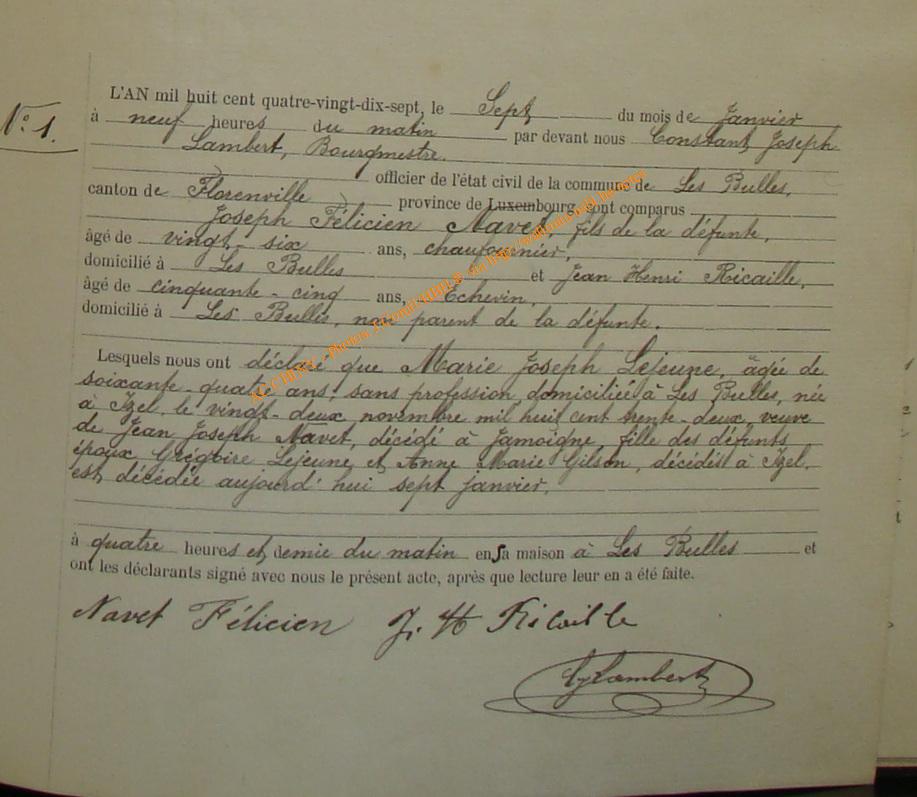 N° 1.
L'AN mil huit cent quatre-vingt-dix-sept, le Sept du mois de Janvier
à neuf heures du matin par devant nous Constant Joseph
Lambert, Bourgmestre.
officier de l'état civil de la commune de Les Bulles,
canton de Florenville province de Luxembourg, sont comparus
Joseph Félicien Navet, fils de la défunte,
âgé de vingt-six ans, chaufournier,
domicilié à Les Bulles et Jean Henri Ricaille,
âgé de cinquante-cinq ans, Echevin,
domicilié à Les Bulles, non parent de la défunte.
Lesquels nous ont déclaré que Marie Joseph Lejeune, âgée de
soixante-quatre ans, sans profession, domiciliée à Les Bulles, née
à Izel, le vingt-deux novembre mil huit cent trente-deux, veuve
de Jean Joseph Navet, décédé à Jamoigne, fille des défunts
époux Grégoire Lejeune et Anne Marie Gilson, décédés à Izel.
est décédée aujourd'hui sept janvier,
à quatre heures et demie du matin en sa maison à Les Bulles et
ont les déclarants signé avec nous le présent acte, après que lecture leur en a été faite.
Navet Félicien J. H Ricaille
Lambert